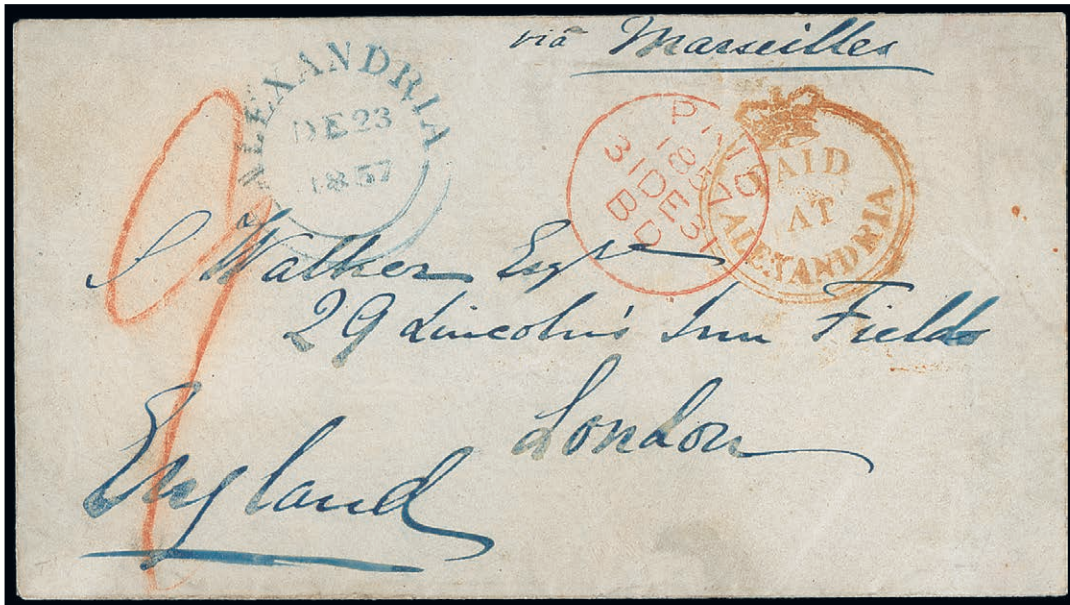 via Marseilles
ALEXANDRIA
DE 23
1857
PAID
1857
31 DE 31
BD
PAID
AT
ALEXANDRIA
9
Walker Esqr
29 Lincoln's Inn Fields
London
England